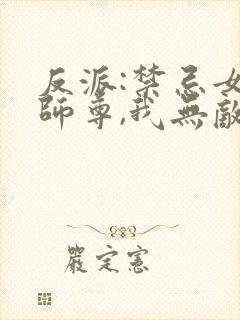 反派:禁忌女
師尊,我無敵
嚴定憲